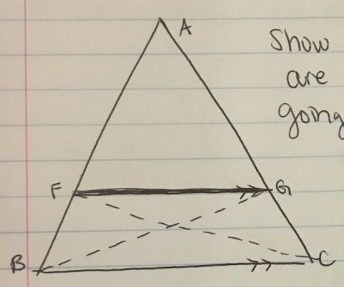 A
Show
are
going
F
G
B
C